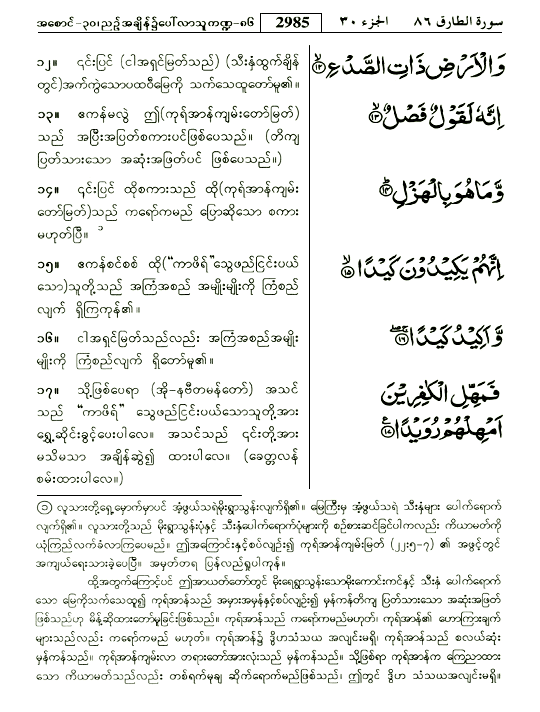 အစောင်-၃၀၊ညဉ့်အချိန်၌ပေါ်လာသူကဏ္ဍ-၈၆ 2985 الجزء ٣٠ سورة الطارق ٨٦
၁၂။ ၎င်းပြင် (ငါအရှင်မြတ်သည်) (သီးနှံထွက်ချိန်
တွင်)အက်ကွဲသောပထဝီမြေကို သက်သေထူတော်မူ၏။
وَالْاَرْضِ ذَاتِ الصَّدْعِ ۙ‏﴿۱۲﴾
၁၃။ ဧကန်မလွဲ ဤ(ကုရ်အာန်ကျမ်းတော်မြတ်)
သည် အပြီးအပြတ်စကားပင်ဖြစ်ပေသည်။ (တိကျ
ပြတ်သားသော အဆုံးအဖြတ်ပင် ဖြစ်ပေသည်။)
اِنَّهٗ لَقَوْلٌ فَصْلٌ ۙ‏﴿۱۳﴾
၁၄။ ၎င်းပြင် ထိုစကားသည် ထို(ကုရ်အာန်ကျမ်း
တော်မြတ်)သည် ကရော်ကမည် ပြောဆိုသော စကား
မဟုတ်ပြီ။ ၁
وَّمَا هُوَ بِالْهَزْلِ ؕ‏﴿۱۴﴾
၁၅။ ဧကန်စင်စစ် ထို(“ကာဖိရ်”သွေဖည်ငြင်းပယ်
သော)သူတို့သည် အကြံအစည် အမျိုးမျိုးကို ကြံစည်
လျက် ရှိကြကုန်၏။
اِنَّهُمْ يَكِيْدُوْنَ كَيْدًا ۙ‏﴿۱۵﴾
၁၆။ ငါအရှင်မြတ်သည်လည်း အကြံအစည်အမျိုး
မျိုးကို ကြံစည်လျက် ရှိတော်မူ၏။
وَّاَكِيْدُ كَيْدًا ۚۖ‏﴿۱۶﴾
၁၇။ သို့ဖြစ်ပေရာ (အို-နဗီတမန်တော်) အသင်
သည် “ကာဖိရ်” သွေဖည်ငြင်းပယ်သောသူတို့အား
ရွှေ့ဆိုင်းခွင့်ပေးပါလေ။ အသင်သည် ၎င်းတို့အား
မသိမသာ အချိန်ဆွဲ၍ ထားပါလေ။ (ခေတ္တလန်
စမ်းထားပါလေ။)
فَمَهِّلِ الْكٰفِرِيْنَ
اَمْهِلْهُمْ رُوَيْدًا
၁ လူသားတို့ရှေ့မှောက်မှာပင် အံ့ဖွယ်သရဲမိုးရွာသွန်းလျက်ရှိ၏။ မြေကြီးမှ အံ့ဖွယ်သရဲ သီးနှံများ ပေါက်ရောက်
လျက်ရှိ၏။ လူသားတို့သည် မိုးရွာသွန်းပုံနှင့် သီးနှံပေါက်ရောက်ပုံများကို စဉ်းစားဆင်ခြင်ပါကလည်း ကိယာမတ်ကို
ယုံကြည်လက်ခံလာကြပေမည်။ ဤအကြောင်းနှင့်စပ်လျဉ်း၍ ကုရ်အာန်ကျမ်းမြတ် (၂၂:၅-၇) ၏ အဖွင့်တွင်
အကျယ်ရေးသားခဲ့ပေပြီ။ အမှတ်တရ ပြန်လည်ရှုပါကုန်။
ထို့အတွက်ကြောင့်ပင် ဤအာယတ်တော်တွင် မိုးရေရွာသွန်းသောမိုးကောင်းကင်နှင့် သီးနှံ ပေါက်ရောက်
သော မြေကိုသက်သေထူ၍ ကုရ်အာန်သည် အမှားအမှန်နှင့်စပ်လျဉ်း၍ မှန်ကန်တိကျ ပြတ်သားသော အဆုံးအဖြတ်
ဖြစ်သည်ဟု မိန့်ဆိုထားတော်မူခြင်းဖြစ်သည်။ ကုရ်အာန်သည် ကရော်ကမည်မဟုတ်။ ကုရ်အာန်၏ ဟောကြားချက်
များသည်လည်း ကရော်ကမည် မဟုတ်။ ကုရ်အာန်၌ ဒွိဟသံသယ အလျင်းမရှိ။ ကုရ်အာန်သည် စလယ်ဆုံး
မှန်ကန်သည်။ ကုရ်အာန်ကျမ်းလာ တရားတော်အားလုံးသည် မှန်ကန်သည်။ သို့ဖြစ်ရာ ကုရ်အာန်က ကြေညာထား
သော ကိယာမတ်သည်လည်း တစ်ရက်မုချ ဆိုက်ရောက်မည်ဖြစ်သည်၊ ဤတွင် ဒွိဟ သံသယအလျင်းမရှိ။